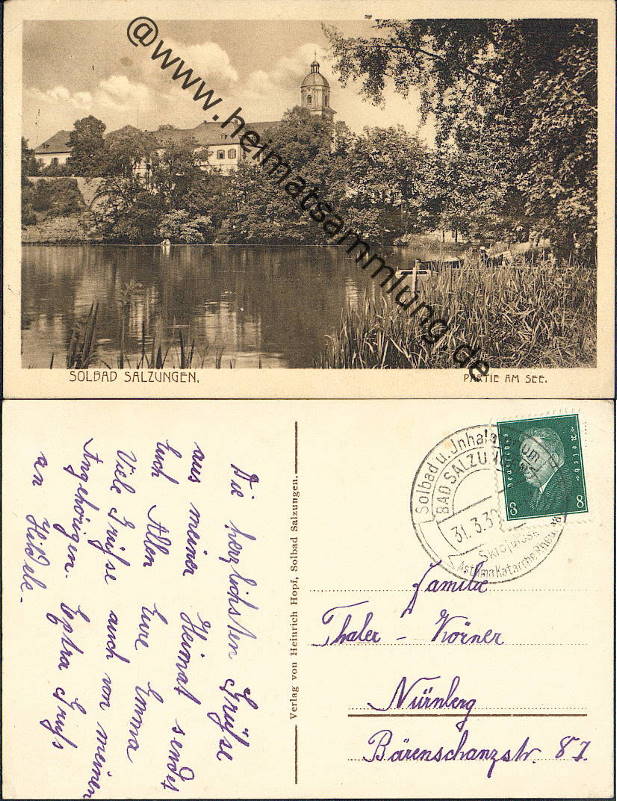 @www.heimatsammlung.de
SOLBAD SALZUNGEN.
PARTIE AM SEE.
Solbad u. Inhalatorium
BAD SALZUNGEN
31.3.3
Skrophulose
Asthma Katarrhe Rheuma
Deutsches Reich
8 8
Die herzlichsten Grüße
aus meiner Heimat sendet
Euch Allen Eure Emma
Viele Grüße auch von meinen
Angehörigen. Extra Gruß
an Hilde.
Verlag von Heinrich Hopf, Solbad Salzungen.
Familie
Thaler - Körner
Nürnberg
Bärenschanzstr. 87.